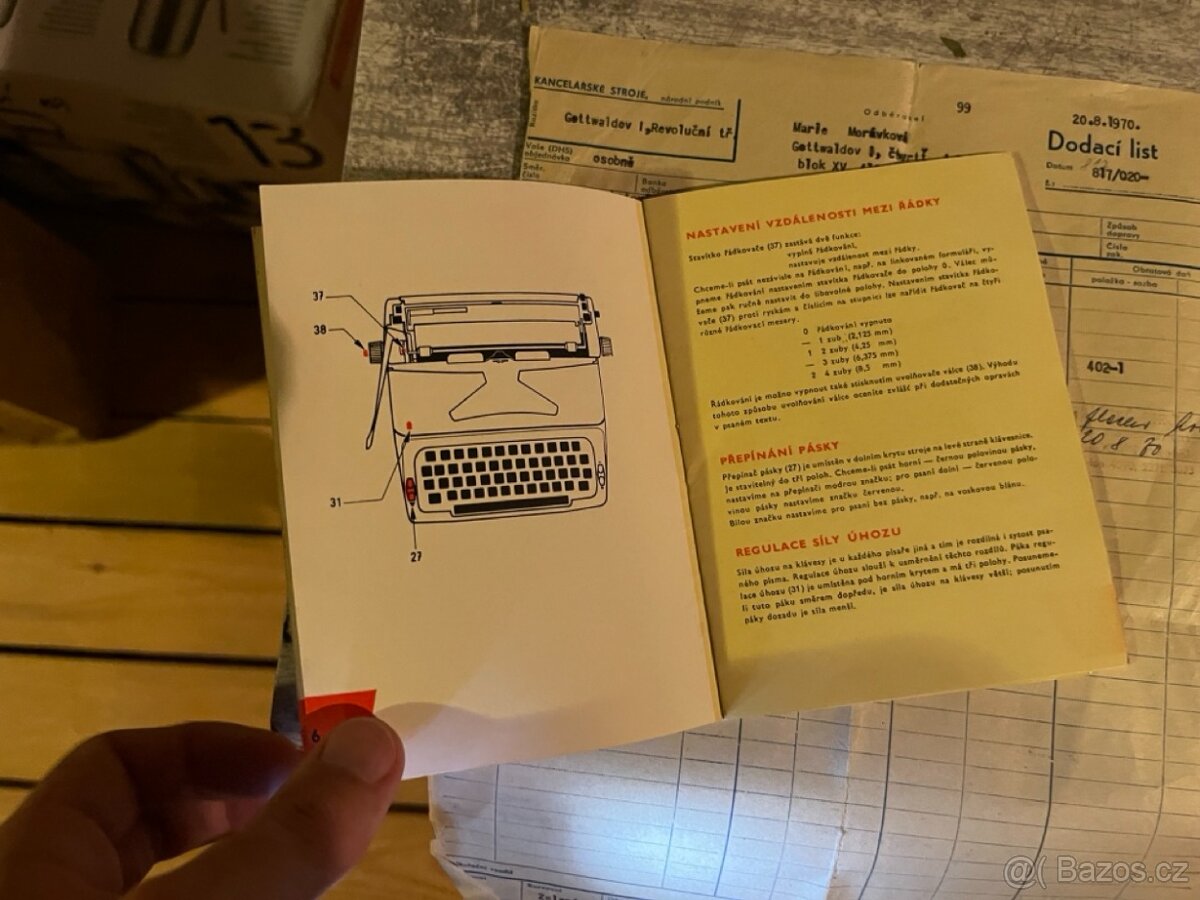 13
KANCELÁŘSKÉ STROJE, národní podnik
Gottwaldov I,Revoluční tř
Vaše (DHS)
objednávka osobně
Směr.
číslo
Banka
Odběratel 99
Marie Morávková
Gottwaldov I, čtvrť
blok XV
20.8.1970.
Dodací list
Datum
817/020-
Způsob
dopravy
Číslo
položka - sazba
402-1
20.8 70
37
38
31
27
6
NASTAVENÍ VZDÁLENOSTI MEZI ŘÁDKY
Stavítko řádkovače (37) zastává dvě funkce:
vypíná řádkování,
nastavuje vzdálenost mezi řádky.
Chceme-li psát nezávisle na řádkování, např. na linkovaném formuláři, vy-
pneme řádkování nastavením stavítka řádkovače do polohy 0. Válec mů-
žeme pak ručně nastavit do libovolné polohy. Nastavením stavítka řádko-
vače (37) proti ryskám s číslicím na stupnici lze nařídit řádkovač na čtyři
různé řádkovací mezery.
0 řádkování vypnuto
— 1 zub (2,125 mm)
1 2 zuby (4,25 mm)
— 3 zuby (6,375 mm)
2 4 zuby (8,5 mm)
Řádkování je možno vypnout také stisknutím uvolňovače válce (38). Výhodu
tohoto způsobu uvolňování válce oceníte zvlášť při dodatečných opravách
v psaném textu.
PŘEPÍNÁNÍ PÁSKY
Přepínač pásky (27) je umístěn v dolním krytu stroje na levé straně klávesnice.
Je stavitelný do tří poloh. Chceme-li psát horní — černou polovinou pásky,
nastavíme na přepínači modrou značku; pro psaní dolní — červenou polo-
vinou pásky nastavíme značku červenou.
Bílou značku nastavíme pro psaní bez pásky, např. na voskovou blánu.
REGULACE SÍLY ÚHOZU
Síla úhozu na klávesy je u každého písaře jiná a tím je rozdílná i sytost psa-
ného písma. Regulace úhozu slouží k usměrnění těchto rozdílů. Páka regu-
lace úhozu (31) je umístěna pod horním krytem a má tři polohy. Posuneme-
li tuto páku směrem dopředu, je síla úhozu na klávesy větší; posunutím
páky dozadu je síla menší.
Bazos.cz